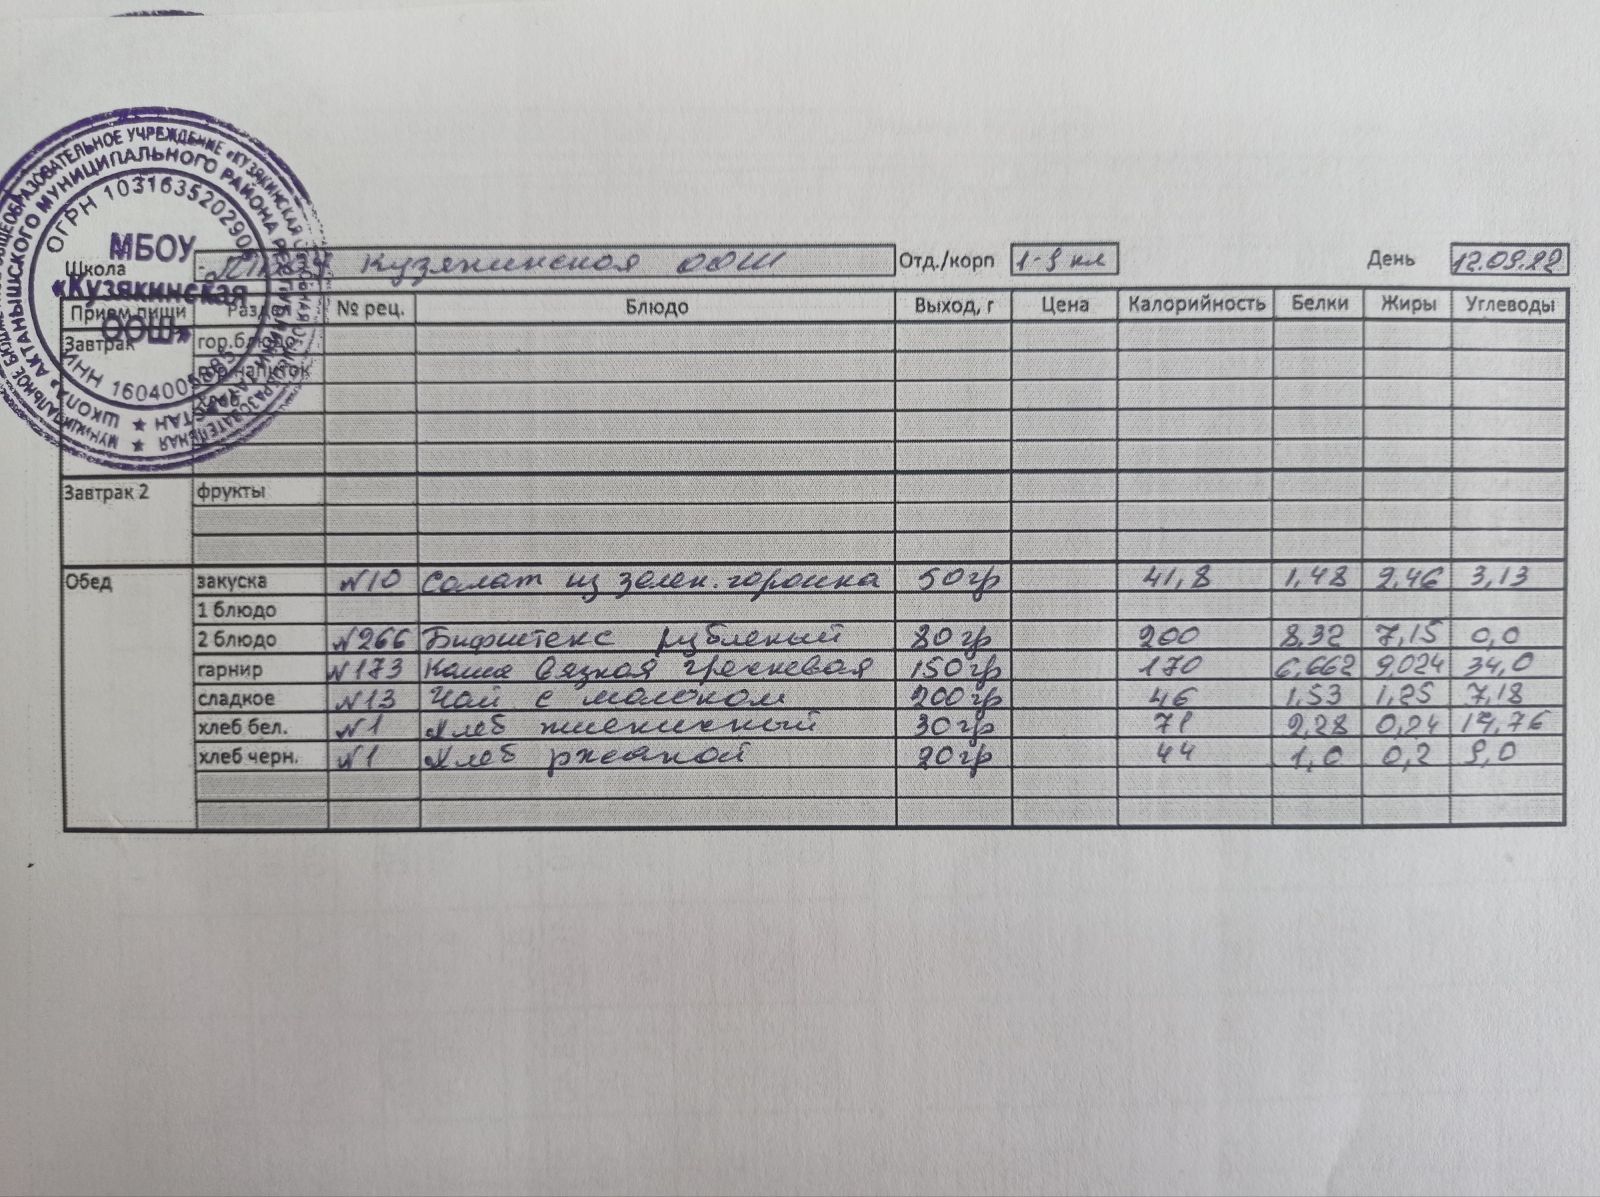 МУНИЦИПАЛЬНОЕ БЮДЖЕТНОЕ ОБЩЕОБРАЗОВАТЕЛЬНОЕ УЧРЕЖДЕНИЕ «КУЗЯКИНСКАЯ ОСНОВНАЯ ОБЩЕОБРАЗОВАТЕЛЬНАЯ
ШКОЛА» АКТАНЫШСКОГО МУНИЦИПАЛЬНОГО РАЙОНА РЕСПУБЛИКИ ТАТАРСТАН
ОГРН 103163520290
ИНН 160400
МБОУ
«Кузякинская
ООШ»
Школа Кузякинская ООШ Отд./корп 1-9 кл День 12.09.22
Прием пищи Разд № рец. Блюдо Выход, г Цена Калорийность Белки Жиры Углеводы
Завтрак гор.блюдо
напиток
хлеб
Завтрак 2 фрукты
Обед закуска №10 Салат из зелен.горошка 50гр 41,8 1,48 2,46 3,13
1 блюдо
2 блюдо №266 Бифштекс рубленый 80гр 200 8,32 7,15 0,0
гарнир №173 Каша вязкая гречневая 150гр 170 6,662 9,024 34,0
сладкое №13 Чай с молоком 200гр 46 1,53 1,25 7,18
хлеб бел. №1 Хлеб пшеничный 30гр 71 2,28 0,24 14,76
хлеб черн. №1 Хлеб ржаной 20гр 44 1,0 0,2 9,0